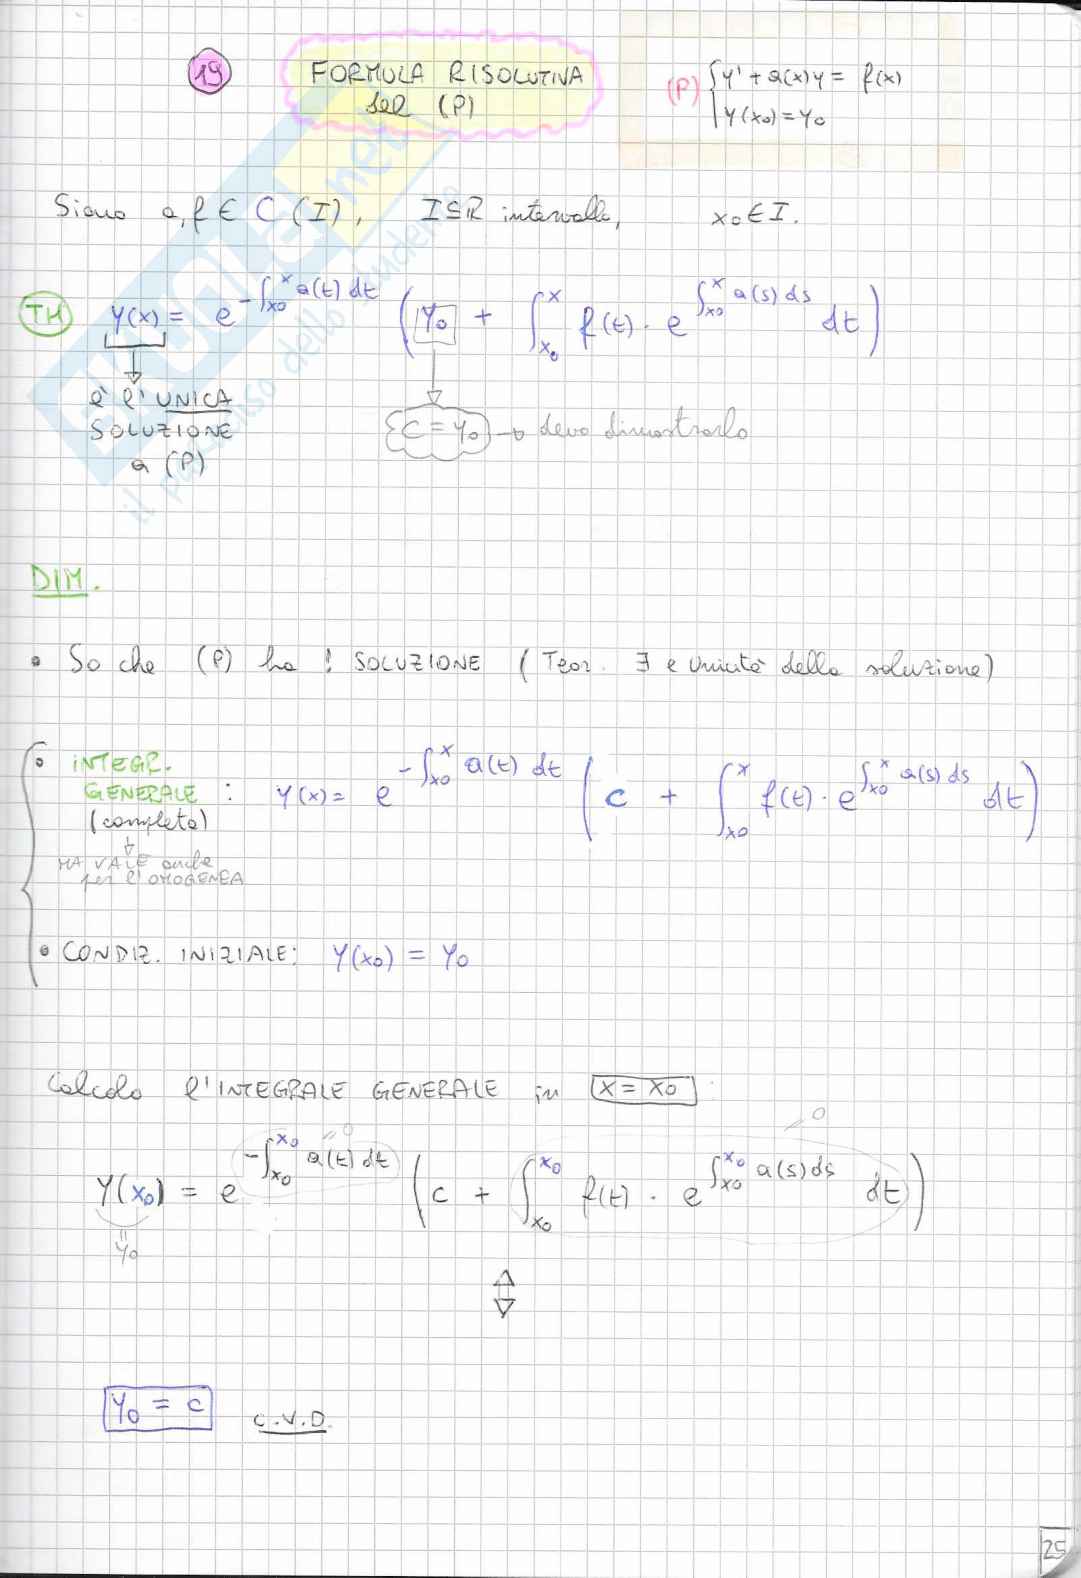 19
FORMULA RISOLUTIVA
del (P)
(P) { y' + a(x)y = f(x)
y(x₀) = y₀
Siano a, f ∈ C(I), I ⊆ ℝ intervallo, x₀ ∈ I.
TH y(x) = e^{-∫_{x₀}^{x} a(t) dt} ( y₀ + ∫_{x₀}^{x} f(t) · e^{∫_{x₀}^{x} a(s) ds} dt )
è l'UNICA
SOLUZIONE
a (P)
c = y₀ → devo dimostrarlo
DIM.
• So che (P) ha ! SOLUZIONE (Teor. ∃ e unicità della soluzione)
• INTEGR.
GENERALE : y(x) = e^{-∫_{x₀}^{x} a(t) dt} ( c + ∫_{x₀}^{x} f(t) · e^{∫_{x₀}^{x} a(s) ds} dt )
(completa)
↓
MA VALE anche
per l'OMOGENEA
• CONDIZ. INIZIALE: y(x₀) = y₀
Calcolo l'INTEGRALE GENERALE in x = x₀
= 0
0
y(x₀) = e^{-∫_{x₀}^{x₀} a(t) dt} ( c + ∫_{x₀}^{x₀} f(t) · e^{∫_{x₀}^{x₀} a(s) ds} dt )
=
y₀
⇕
y₀ = c c.v.D.
25
skuola.net
il paradiso dello studente